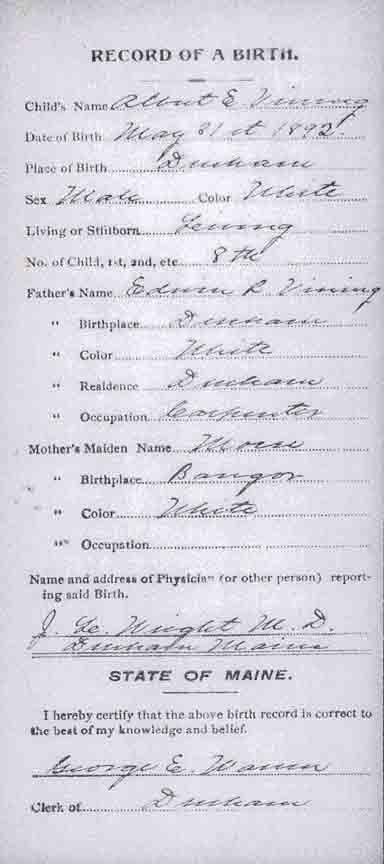 RECORD OF A BIRTH.
Child's Name Albert E Vining
Date of Birth May 31st 1892.
Place of Birth Durham
Sex Male Color White
Living or Stillborn Living
No. of Child, 1st, 2nd, etc. 8th
Father's Name Edwin R Vining
" Birthplace Durham
" Color White
" Residence Durham
" Occupation Carpenter
Mother's Maiden Name
" Birthplace Bangor
" Color White
" Occupation
Name and address of Physician (or other person) report-
ing said Birth.
J. Wright M. D.
Durham Maine
STATE OF MAINE.
I hereby certify that the above birth record is correct to
the best of my knowledge and belief.
George E.
Clerk of Durham